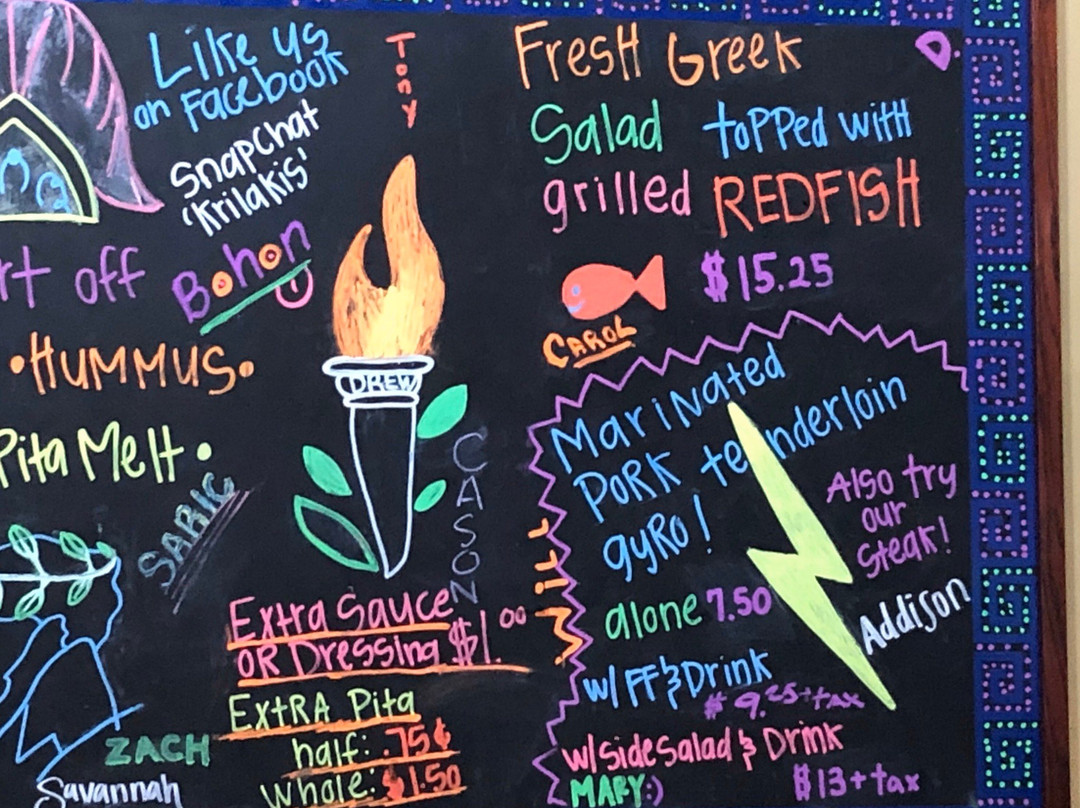 Like us
on Facebook
Snapchat
'Krilakis'
rt off
Bohon
•HUMMUS•
Pita Melt •
SARIC
ZACH
Savannah
Tony
DREW
CASON
Extra Sauce
OR Dressing $1.00
ExtRA Pita
half: .75¢
whole: $1.50
FresH Greek
Salad topped with
grilled REDFISH
$15.25
CAROL
D.
Marinated
PORK tenderloin
gyRo!
Also try
our
steak!
Will
alone 7.50
Addison
w/ FF & Drink
$9.25+tax
w/ Side Salad & Drink
$13+tax
MARY:)